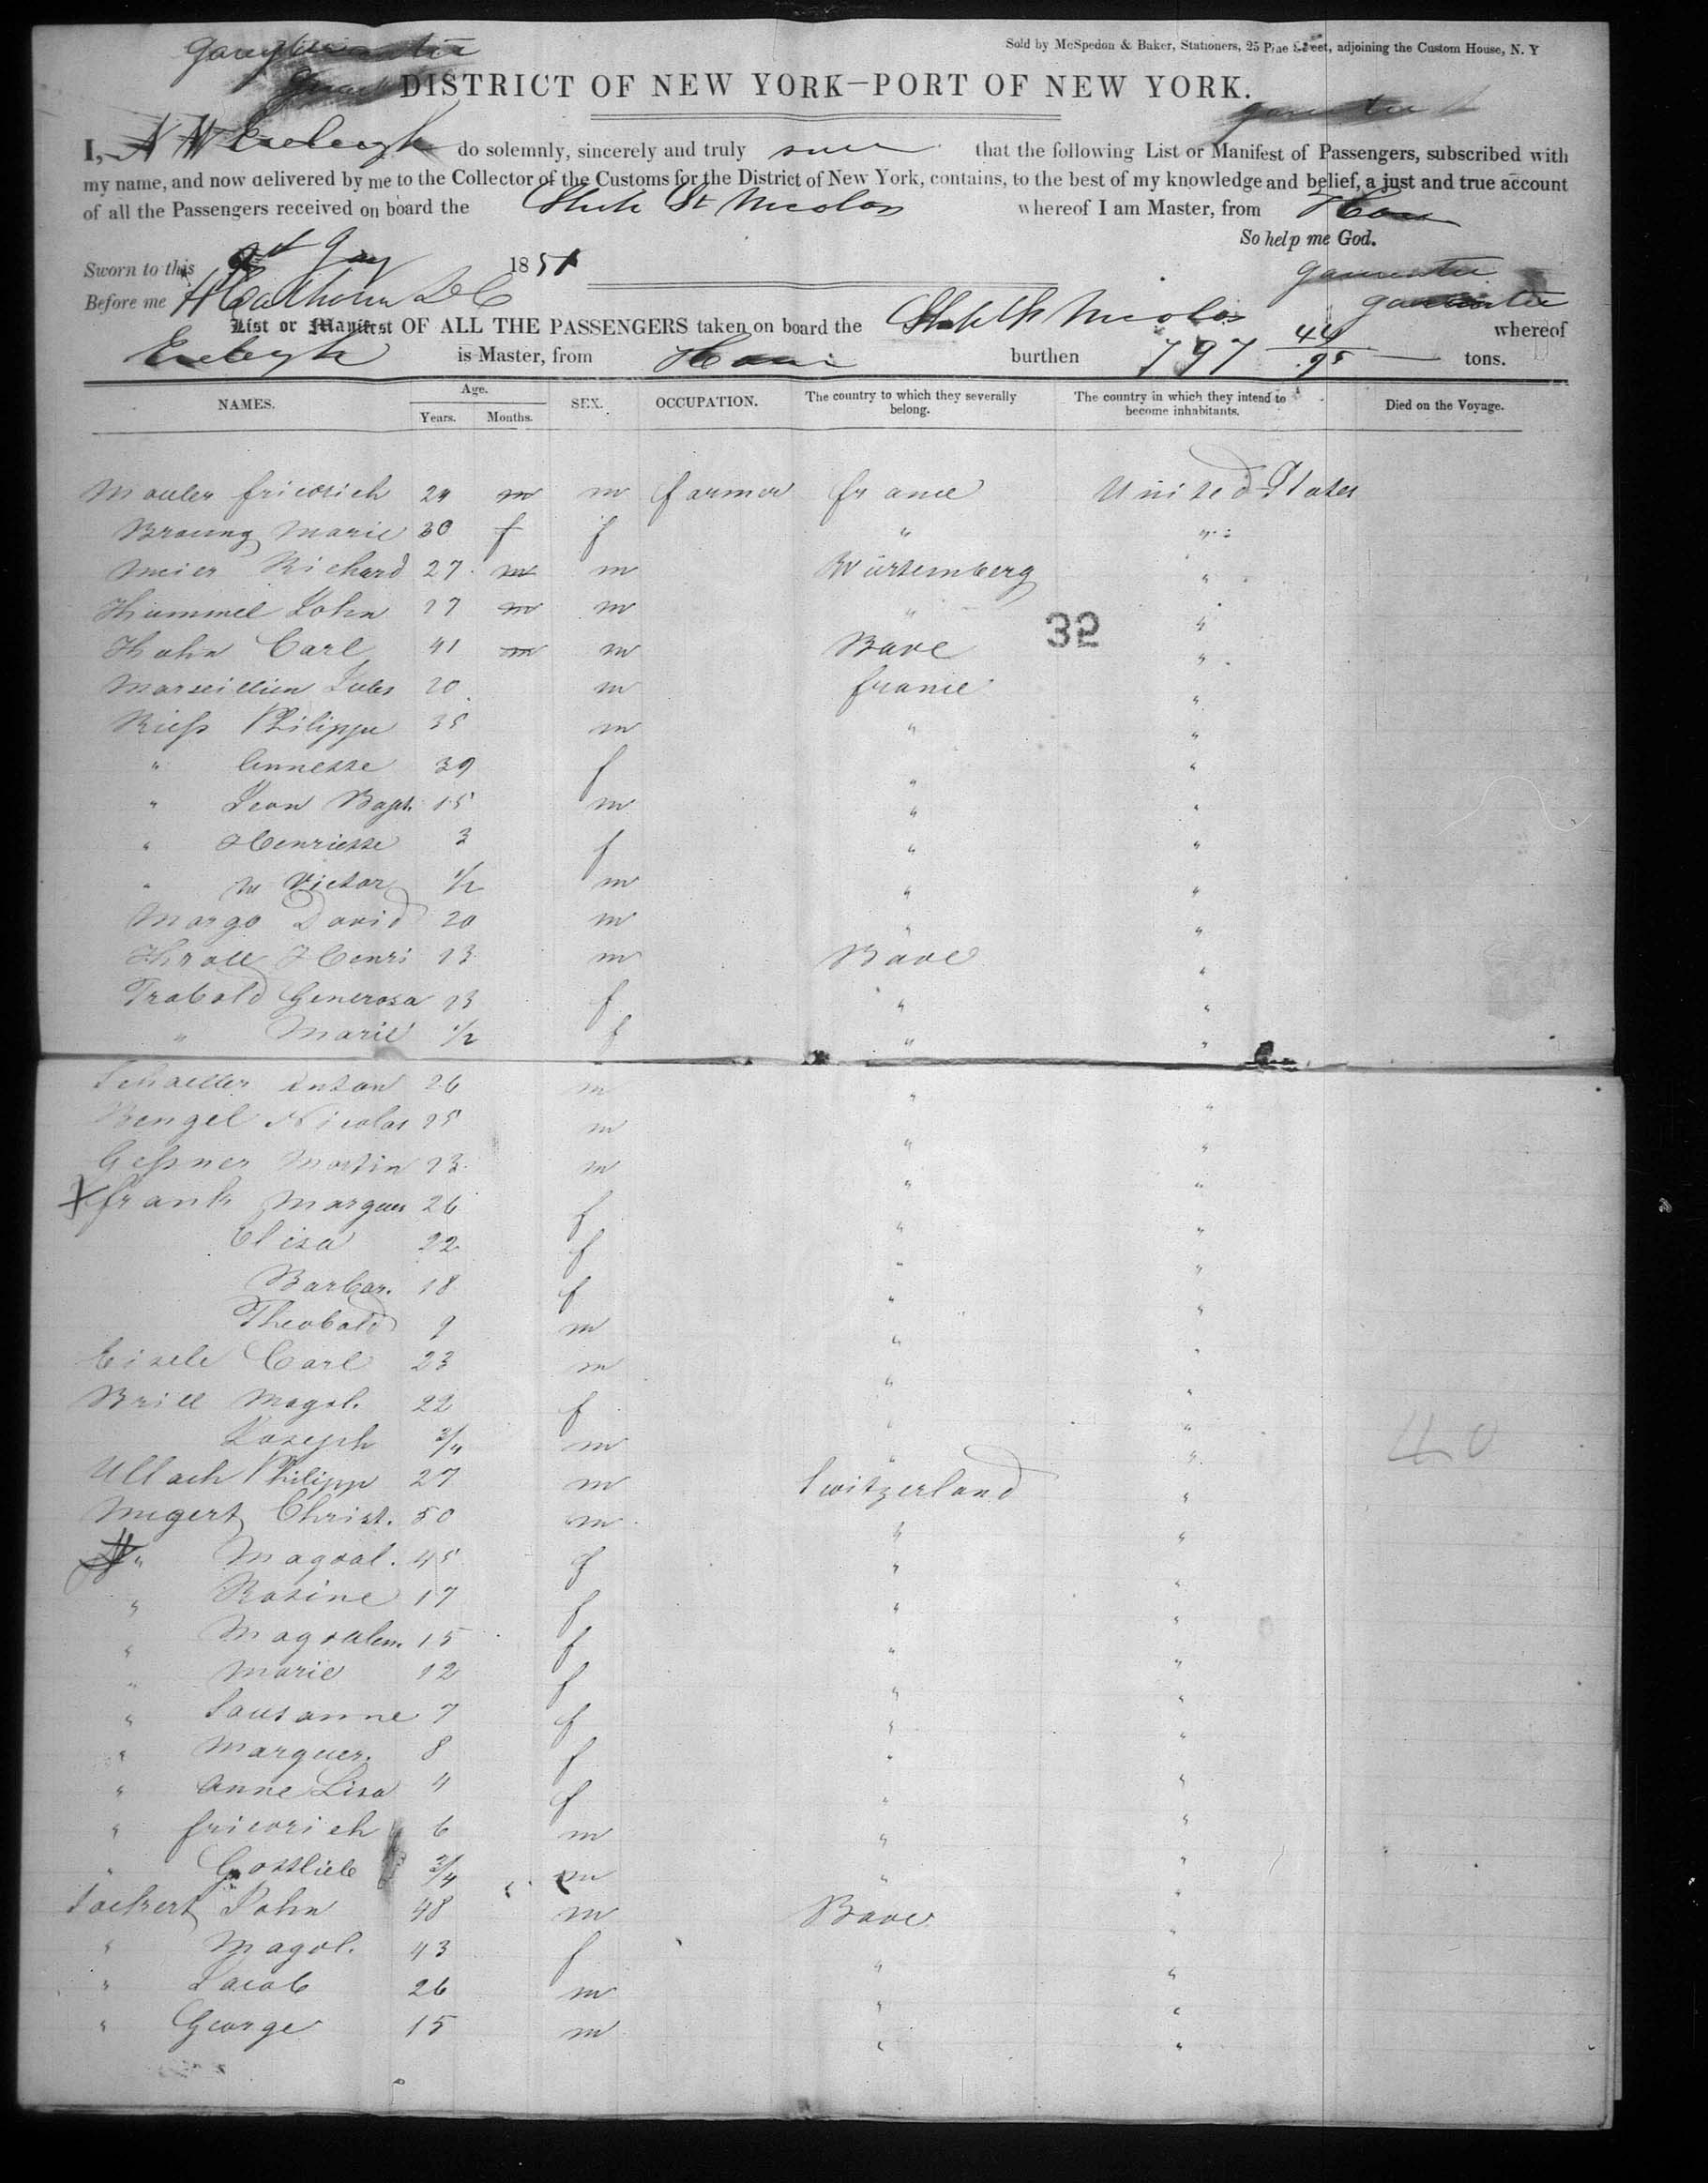 Sold by McSpedon & Baker, Stationers, 25 Pine Street, adjoining the Custom House, N. Y
DISTRICT OF NEW YORK—PORT OF NEW YORK.
I, do solemnly, sincerely and truly that the following List or Manifest of Passengers, subscribed with
my name, and now delivered by me to the Collector of the Customs for the District of New York, contains, to the best of my knowledge and belief, a just and true account
of all the Passengers received on board the Ship St Nicolas whereof I am Master, from
So help me God.
Sworn to this 1851
Before me
List or Manifest OF ALL THE PASSENGERS taken on board the Ship St Nicolas whereof
is Master, from burthen 797 44/95 tons.
NAMES. Age. Years. Months. SEX. OCCUPATION. The country to which they severally belong. The country in which they intend to become inhabitants. Died on the Voyage.
friedrich 29 m m farmer france United States
Marie 30 f f " "
Meier Richard 27 m m Würtemberg "
Hummel John 27 m m " "
32
Hahn Carl 41 m m Bade "
Jules 20 m france "
Philippe 35 m " "
" Annette 39 f " "
" Jean Bapt. 15 m " "
" Henriette 3 f " "
" Victor 1/2 m " "
Margo David 20 m " "
Henri 23 m Bade "
Trabold Generosa 23 f " "
" Marie 1/2 f " "
Anton 26 m " "
Bengel Nicolas 25 m " "
Geßner Martin 23 m " "
X frank Marguer 26 f " "
Elisa 22 f " "
Barbar. 18 f " "
Theobald 9 m " "
Eisele Carl 23 m " "
Brill Magd. 22 f " "
Joseph 3/4 m " "
40
Ullach Philipp 27 m Switzerland "
Christ. 50 m " "
" Magdal. 45 f " "
" Rosine 17 f " "
" Magdalen. 15 f " "
" Marie 12 f " "
" Sausanne 7 f " "
" Marguer. 8 f " "
" Anne Lisa 4 f " "
" friedrich 6 m " "
" Gottlieb 3/4 m " "
John 48 m Bade "
" Magd. 43 f " "
" Jacob 26 m " "
" George 15 m " "